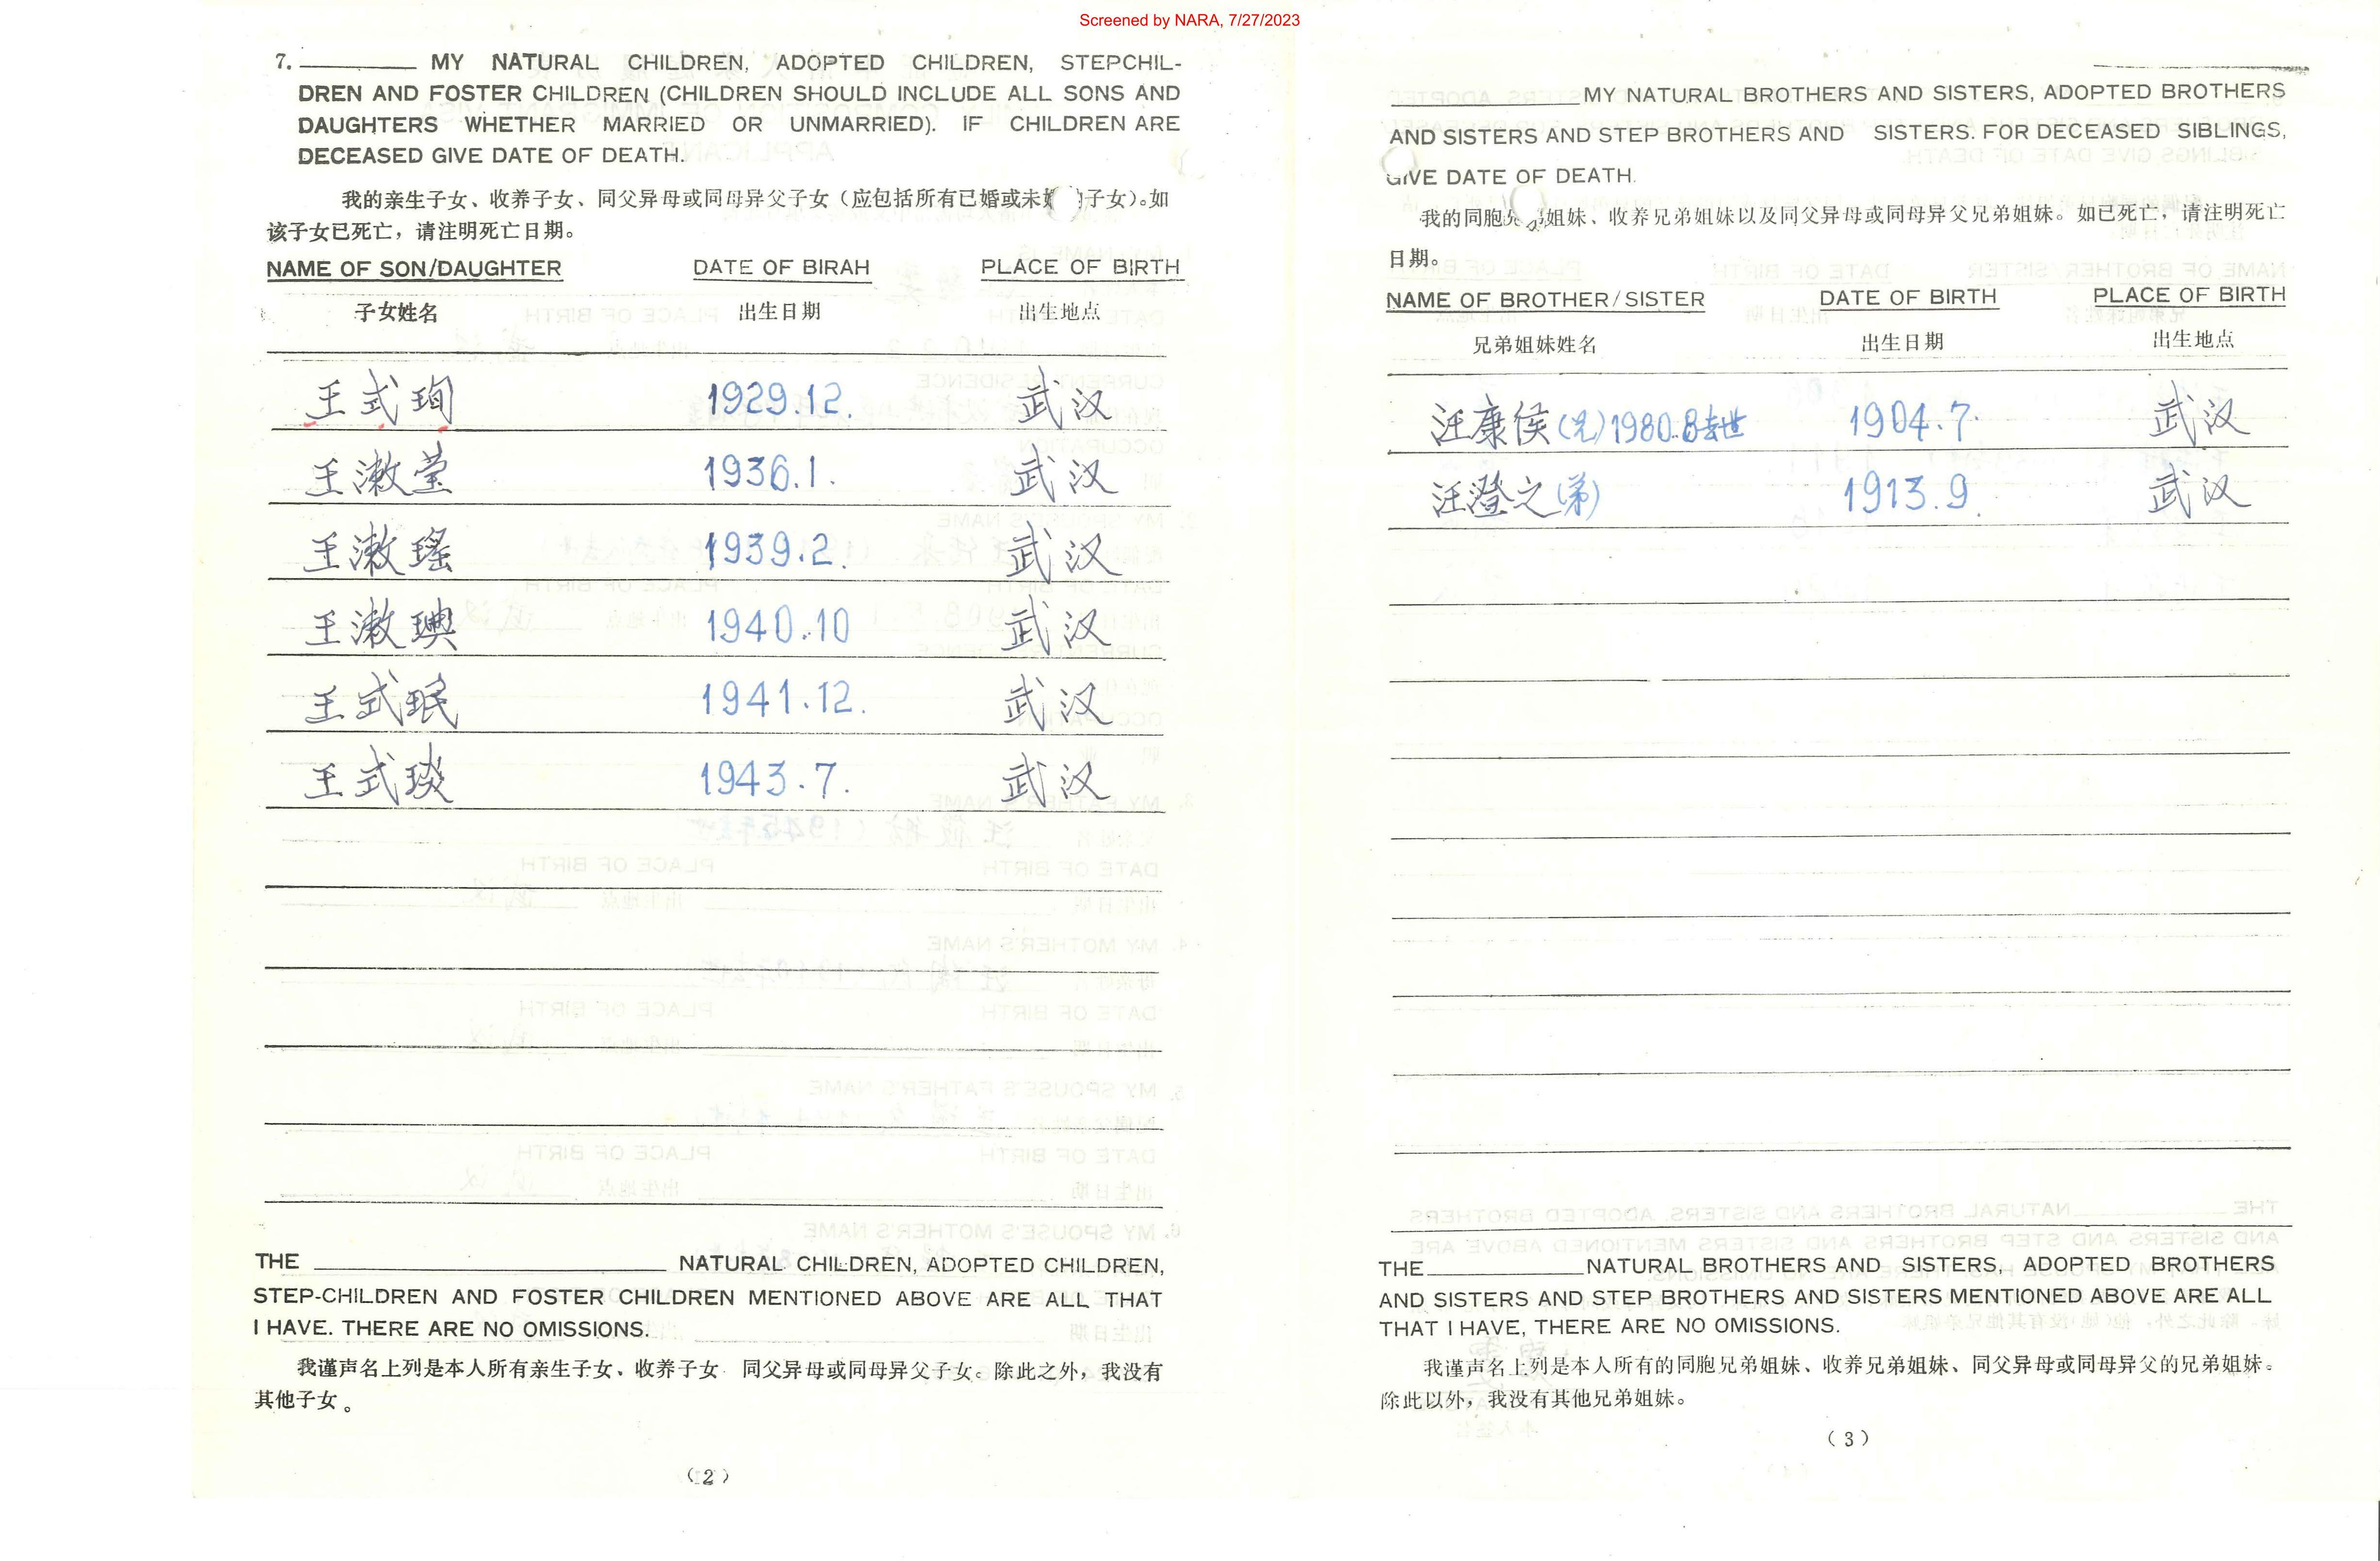 Screened by NARA, 7/27/2023
7. ________ MY NATURAL CHILDREN, ADOPTED CHILDREN, STEPCHIL-
DREN AND FOSTER CHILDREN (CHILDREN SHOULD INCLUDE ALL SONS AND
DAUGHTERS WHETHER MARRIED OR UNMARRIED). IF CHILDREN ARE
DECEASED GIVE DATE OF DEATH.
我的亲生子女、收养子女、同父异母或同母异父子女（应包括所有已婚或未 子女）。如
该子女已死亡，请注明死亡日期。
NAME OF SON/DAUGHTER DATE OF BIRAH PLACE OF BIRTH
子女姓名 出生日期 出生地点
王式珣 1929.12. 武汉
王漱莹 1936.1. 武汉
王漱瑶 1939.2. 武汉
王漱璵 1940.10 武汉
王式珉 1941.12. 武汉
王式琰 1943.7. 武汉
THE ________ NATURAL CHILDREN, ADOPTED CHILDREN,
STEP-CHILDREN AND FOSTER CHILDREN MENTIONED ABOVE ARE ALL THAT
I HAVE. THERE ARE NO OMISSIONS.
我谨声名上列是本人所有亲生子女、收养子女 同父异母或同母异父子女。除此之外，我没有
其他子女。
(2)
________ MY NATURAL BROTHERS AND SISTERS, ADOPTED BROTHERS
AND SISTERS AND STEP BROTHERS AND SISTERS. FOR DECEASED SIBLINGS,
GIVE DATE OF DEATH.
我的同胞 姐妹、收养兄弟姐妹以及同父异母或同母异父兄弟姐妹。如已死亡，请注明死亡
日期。
NAME OF BROTHER/SISTER DATE OF BIRTH PLACE OF BIRTH
兄弟姐妹姓名 出生日期 出生地点
汪康侯(兄)1980.8去世 1904.7. 武汉
汪澄之(弟) 1913.9. 武汉
THE ________ NATURAL BROTHERS AND SISTERS, ADOPTED BROTHERS
AND SISTERS AND STEP BROTHERS AND SISTERS MENTIONED ABOVE ARE ALL
THAT I HAVE, THERE ARE NO OMISSIONS.
我谨声名上列是本人所有的同胞兄弟姐妹、收养兄弟姐妹、同父异母或同母异父的兄弟姐妹。
除此以外，我没有其他兄弟姐妹。
(3)